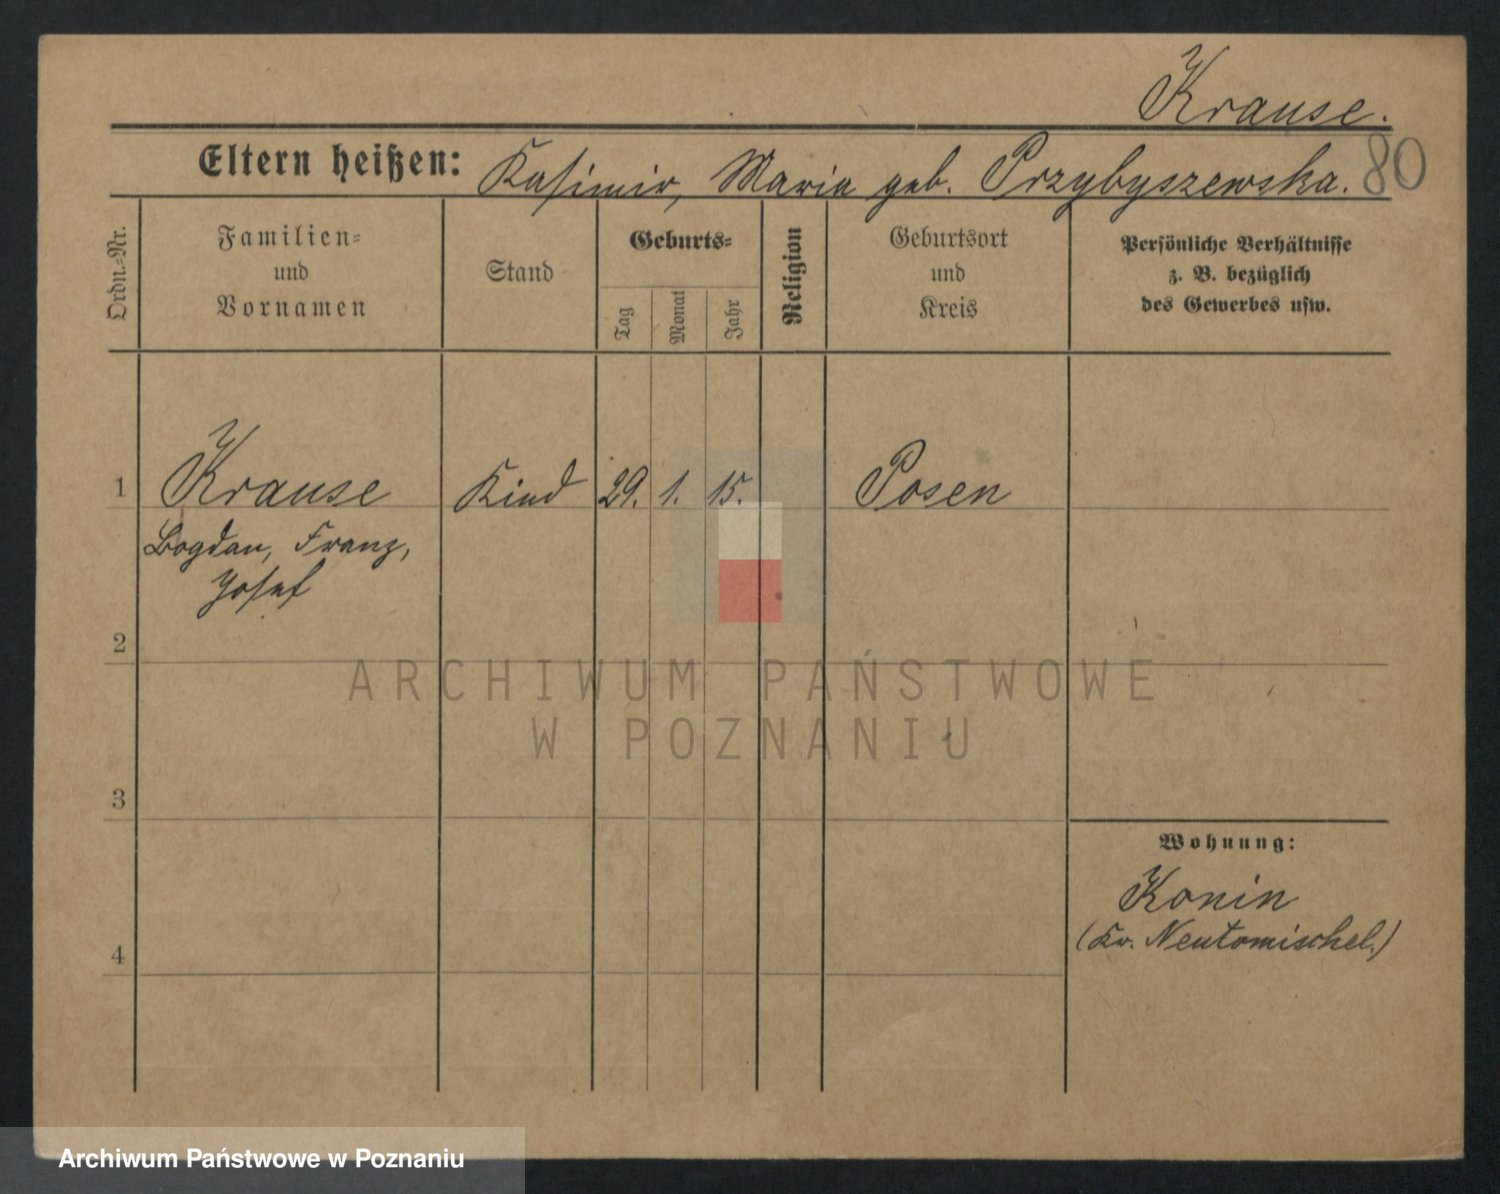 Krause.
80
Eltern heißen: Kasimir, Maria geb. Przybyszewska.
Ordn.=Nr.
Familien=
und
Vornamen
Stand
Geburts=
Tag
Monat
Jahr
Religion
Geburtsort
und
Kreis
Persönliche Verhältnisse
z. B. bezüglich
des Gewerbes usw.
1 Krause Kind 29. 1. 15. Posen
Bogdan, Franz,
Josef
2
ARCHIWUM PAŃSTWOWE
W POZNANIU
3
Wohnung:
Konin
(Kr. Neutomischel.)
4
Archiwum Państwowe w Poznaniu